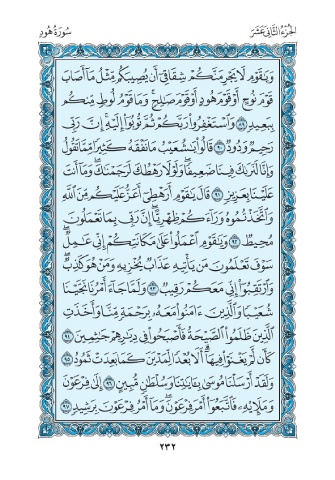 الجزء الثاني عشر
سورة هود
وَيَٰقَوۡمِ لَا يَجۡرِمَنَّكُمۡ شِقَاقِيٓ أَن يُصِيبَكُم مِّثۡلُ مَآ أَصَابَ
قَوۡمَ نُوحٍ أَوۡ قَوۡمَ هُودٍ أَوۡ قَوۡمَ صَٰلِحٖۚ وَمَا قَوۡمُ لُوطٖ مِّنكُم
بِبَعِيدٖ ٨٩ وَٱسۡتَغۡفِرُواْ رَبَّكُمۡ ثُمَّ تُوبُوٓاْ إِلَيۡهِۚ إِنَّ رَبِّي
رَحِيمٞ وَدُودٞ ٩٠ قَالُواْ يَٰشُعَيۡبُ مَا نَفۡقَهُ كَثِيرٗا مِّمَّا تَقُولُ
وَإِنَّا لَنَرَىٰكَ فِينَا ضَعِيفٗاۖ وَلَوۡلَا رَهۡطُكَ لَرَجَمۡنَٰكَۖ وَمَآ أَنتَ
عَلَيۡنَا بِعَزِيزٖ ٩١ قَالَ يَٰقَوۡمِ أَرَهۡطِيٓ أَعَزُّ عَلَيۡكُم مِّنَ ٱللَّهِ
وَٱتَّخَذۡتُمُوهُ وَرَآءَكُمۡ ظِهۡرِيًّاۖ إِنَّ رَبِّي بِمَا تَعۡمَلُونَ
مُحِيطٞ ٩٢ وَيَٰقَوۡمِ ٱعۡمَلُواْ عَلَىٰ مَكَانَتِكُمۡ إِنِّي عَٰمِلٞۖ
سَوۡفَ تَعۡلَمُونَ مَن يَأۡتِيهِ عَذَابٞ يُخۡزِيهِ وَمَنۡ هُوَ كَٰذِبٞۖ
وَٱرۡتَقِبُوٓاْ إِنِّي مَعَكُمۡ رَقِيبٞ ٩٣ وَلَمَّا جَآءَ أَمۡرُنَا نَجَّيۡنَا
شُعَيۡبٗا وَٱلَّذِينَ ءَامَنُواْ مَعَهُۥ بِرَحۡمَةٖ مِّنَّا وَأَخَذَتِ
ٱلَّذِينَ ظَلَمُواْ ٱلصَّيۡحَةُ فَأَصۡبَحُواْ فِي دِيَٰرِهِمۡ جَٰثِمِينَ ٩٤
كَأَن لَّمۡ يَغۡنَوۡاْ فِيهَآۗ أَلَا بُعۡدٗا لِّمَدۡيَنَ كَمَا بَعِدَتۡ ثَمُودُ ٩٥
وَلَقَدۡ أَرۡسَلۡنَا مُوسَىٰ بِـَٔايَٰتِنَا وَسُلۡطَٰنٖ مُّبِينٍ ٩٦ إِلَىٰ فِرۡعَوۡنَ
وَمَلَإِيْهِۦ فَٱتَّبَعُوٓاْ أَمۡرَ فِرۡعَوۡنَۖ وَمَآ أَمۡرُ فِرۡعَوۡنَ بِرَشِيدٖ ٩٧
٢٣٢